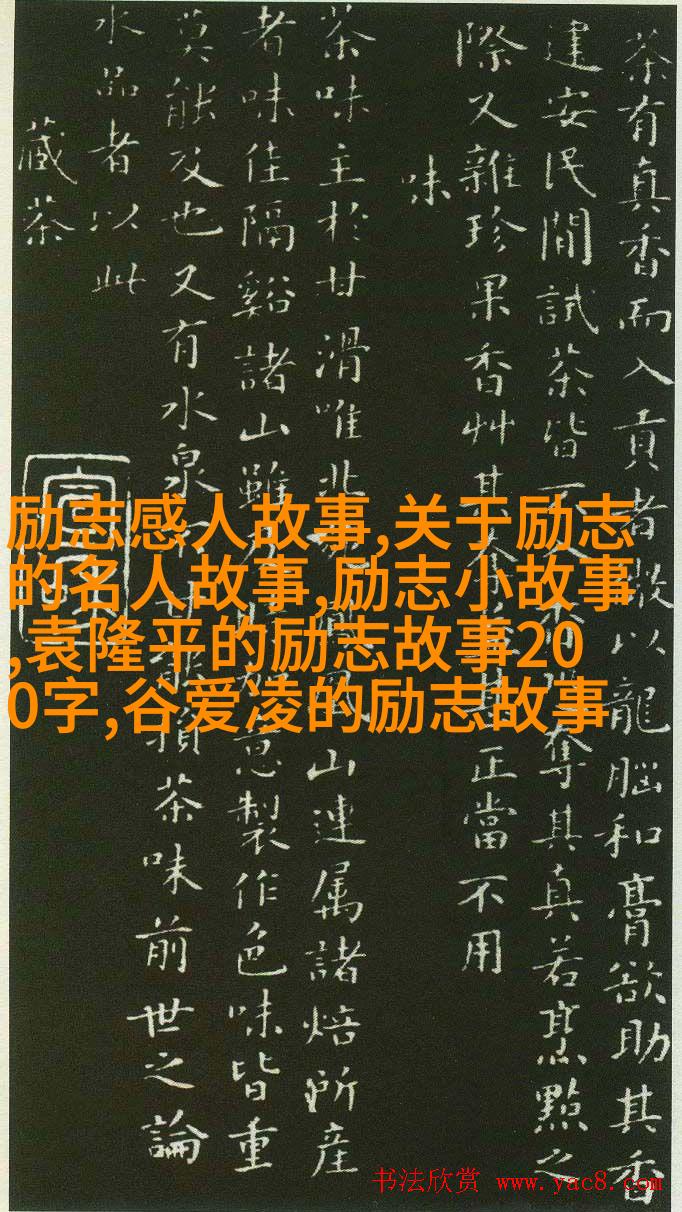 茶有真香而入貢者微以龍腦和膏欲助其香
建安民間試茶皆不奪其真若烹點之
際又雜珍果香艸其正當不用
味
茶味主於甘滑唯北山連属諸焙所産
者味佳隔谿諸山雖意製作色味皆重
莫能及也又有水泉損茶味前世之論
水品者以此
藏茶
励志感人故事,关于励志
的名人故事,励志小故事
,袁隆平的励志故事20
0字,谷爱凌的励志故事
书法欣赏 www.yac8.com